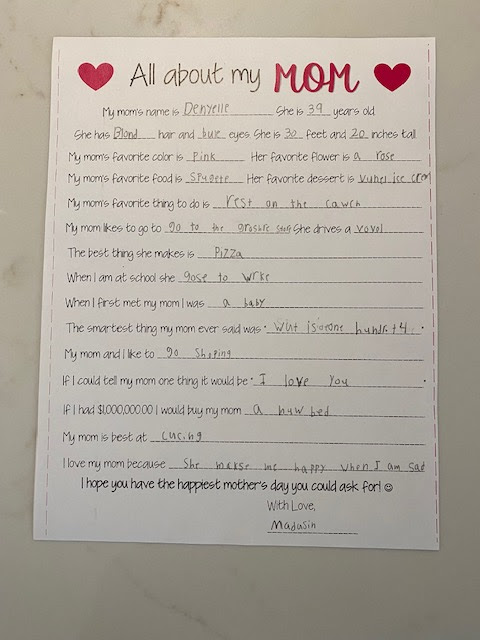 All about my MOM
My mom's name is Denyelle She is 39 years old
She has Blond hair and bule eyes She is 30 feet and 20 inches tall
My mom's favorite color is Pink Her favorite flower is a rose
My mom's favorite food is Spugete Her favorite dessert is vunel ice crem
My mom's favorite thing to do is rest on the cawch
My mom likes to go to go to the groshre She drives a vovol
The best thing she makes is Pizza
When I am at school she gose to wrke
When I first met my mom I was a baby
The smartest thing my mom ever said was "
My mom and I like to go Shoping
If I could tell my mom one thing it would be "I love you"
If I had $1,000,000.00 I would buy my mom a nuw bed
My mom is best at cucing
I love my mom because She makse me happy when I am sad
I hope you have the happiest mother's day you could ask for! ☺
With Love,
Madasin